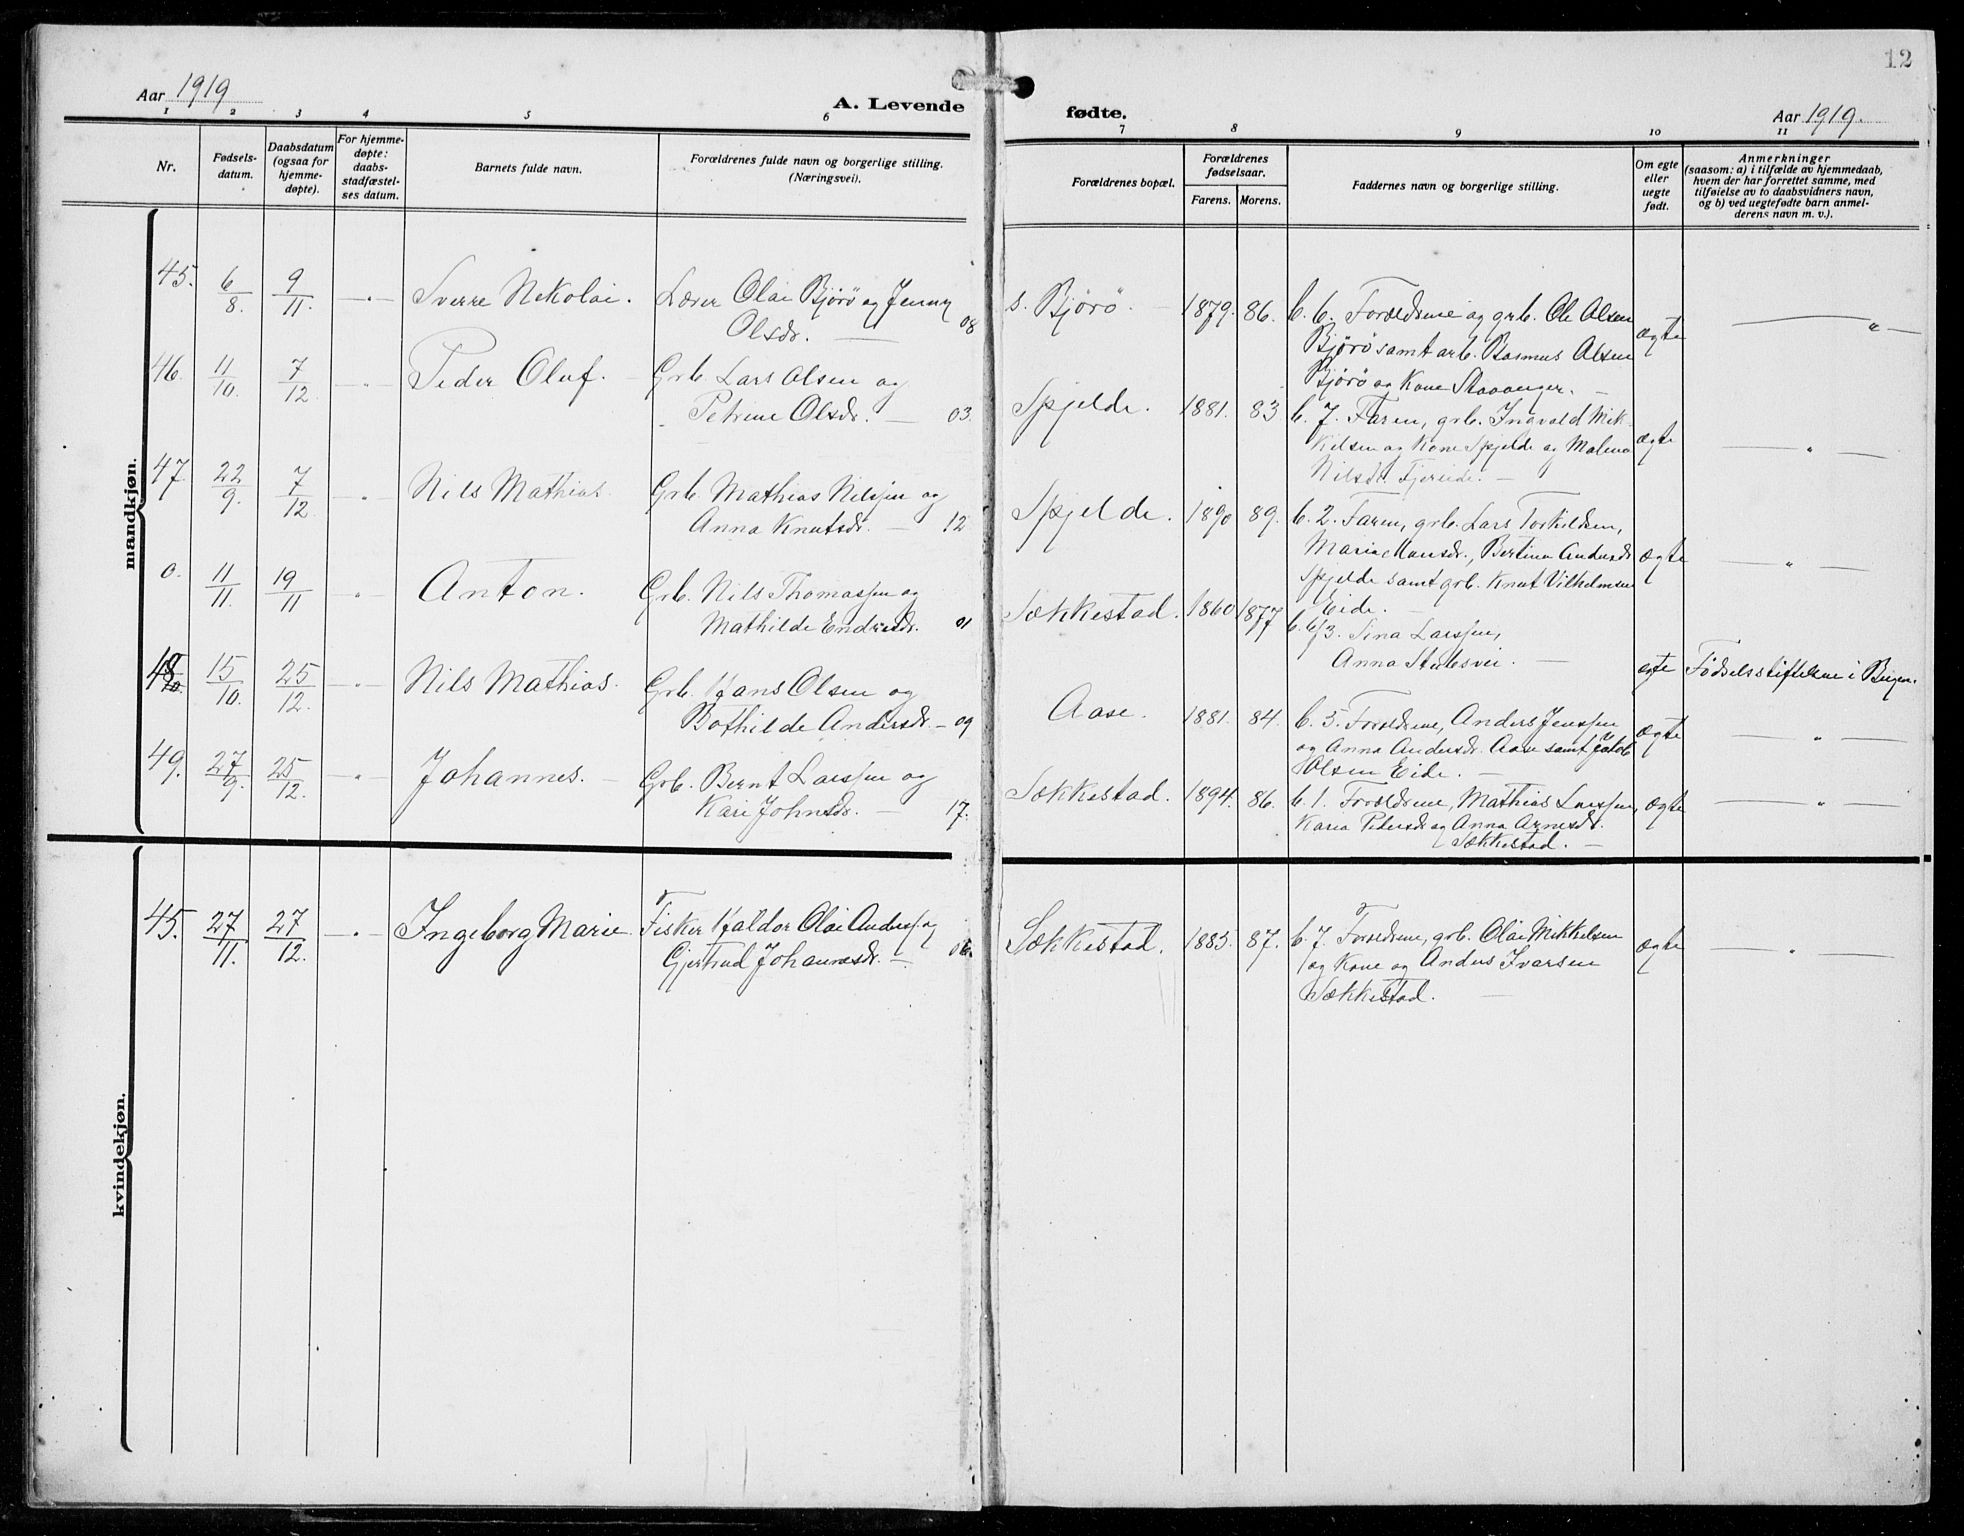 12
Aar 1919
A. Levende
fødte.
Aar 1919.
1 2 3 4 5 6 7 8 9 10 11
Nr.
Fødsels-
datum.
Daabsdatum
(ogsaa for
hjemme-
døpte).
For hjemme-
døpte:
daabs-
stadfæstel-
ses datum.
Barnets fulde navn.
Forældrenes fulde navn og borgerlige stilling.
(Næringsvei).
Forældrenes bopæl.
Forældrenes
fødselsaar.
Farens. Morens.
Faddernes navn og borgerlige stilling.
Om egte
eller
uegte
født.
Anmerkninger
(saasom: a) i tilfælde av hjemmedaab,
hvem der har forrettet samme, med
tilføielse av to daabsvidners navn,
og b) ved uegtefødte barn anmel-
derens navn m. v.).
mandkjøn.
45. 6/8. 9/11. —"— Sverre Nikolai. Lærer Olai Bjørø og Jenny
Olsdr. — 08
s. Bjørø — 1879. 86. b. 6. Forældrene og grb. Ole Olsen
Bjørø samt arb. Rasmus Olsen
Bjørø og Kone Stavanger. —
ægte — " —
46. 11/10. 7/12. —"— Peder Oluf. — Grb. Lars Olsen og
Petrine Olsdr. — 03.
Spjelde. 1881. 83 b. 7. Faren, grb. Ingvald Mik-
kelsen og Kone Spjelde og Malena
Nilsdr. Fjereide. —
ægte — " —
47. 22/9. 7/12. " Nils Mathias. Grb. Mathias Nilssen og
Anna Knutsdr. — 12
Spjelde. 1890 89. b. 2. Faren, grb. Lars Torkildsen,
Maria Hansdr., Bertina Andersdr
Spjelde samt grb. Knut Vilhelmsen
Eide. —
ægte — " —
0. 11/11. 19/11 " Anton. Grb. Nils Thomassen og
Mathilde Endresdr. 01
Sækkestad. 1860 1877 b. 6/3. Sina Larssen,
Anna Stulesvei. —
ægte Fødselsstiftelsen i Bergen.
48 15/10. 25/12. —"— Nils Mathias. Grb. Hans Olsen og
Bothilde Andersdr. — 09
Aase. 1881. 84. b. 5. Forældrene, Anders Jenssen
og Anna Andersdr. Aase samt Jakob
Olsen Eide. —
ægte — " —
49. 27/9. 25/12. —"— Johannes. — Grb. Bernt Larssen og
Kari Johnsdr. — 17.
Sækkestad. 1894. 86. b. 1. Forældrene, Mathias Larssen,
Karia Pedersdr og Anna Arnesdr.
Sækkestad. —
ægte — " —
kvindekjøn.
45. 27/11. 27/12. —"— Ingeborg Marie Fisker Haldor Olai Anderss. og
Gjertrud Johannesdr. — 06.
Sækkestad. 1885. 87. b. 7. Forældrene, grb. Olai Mikkelsen
og Kone og Anders Ivarsen
Sækkestad. —
ægte — " —